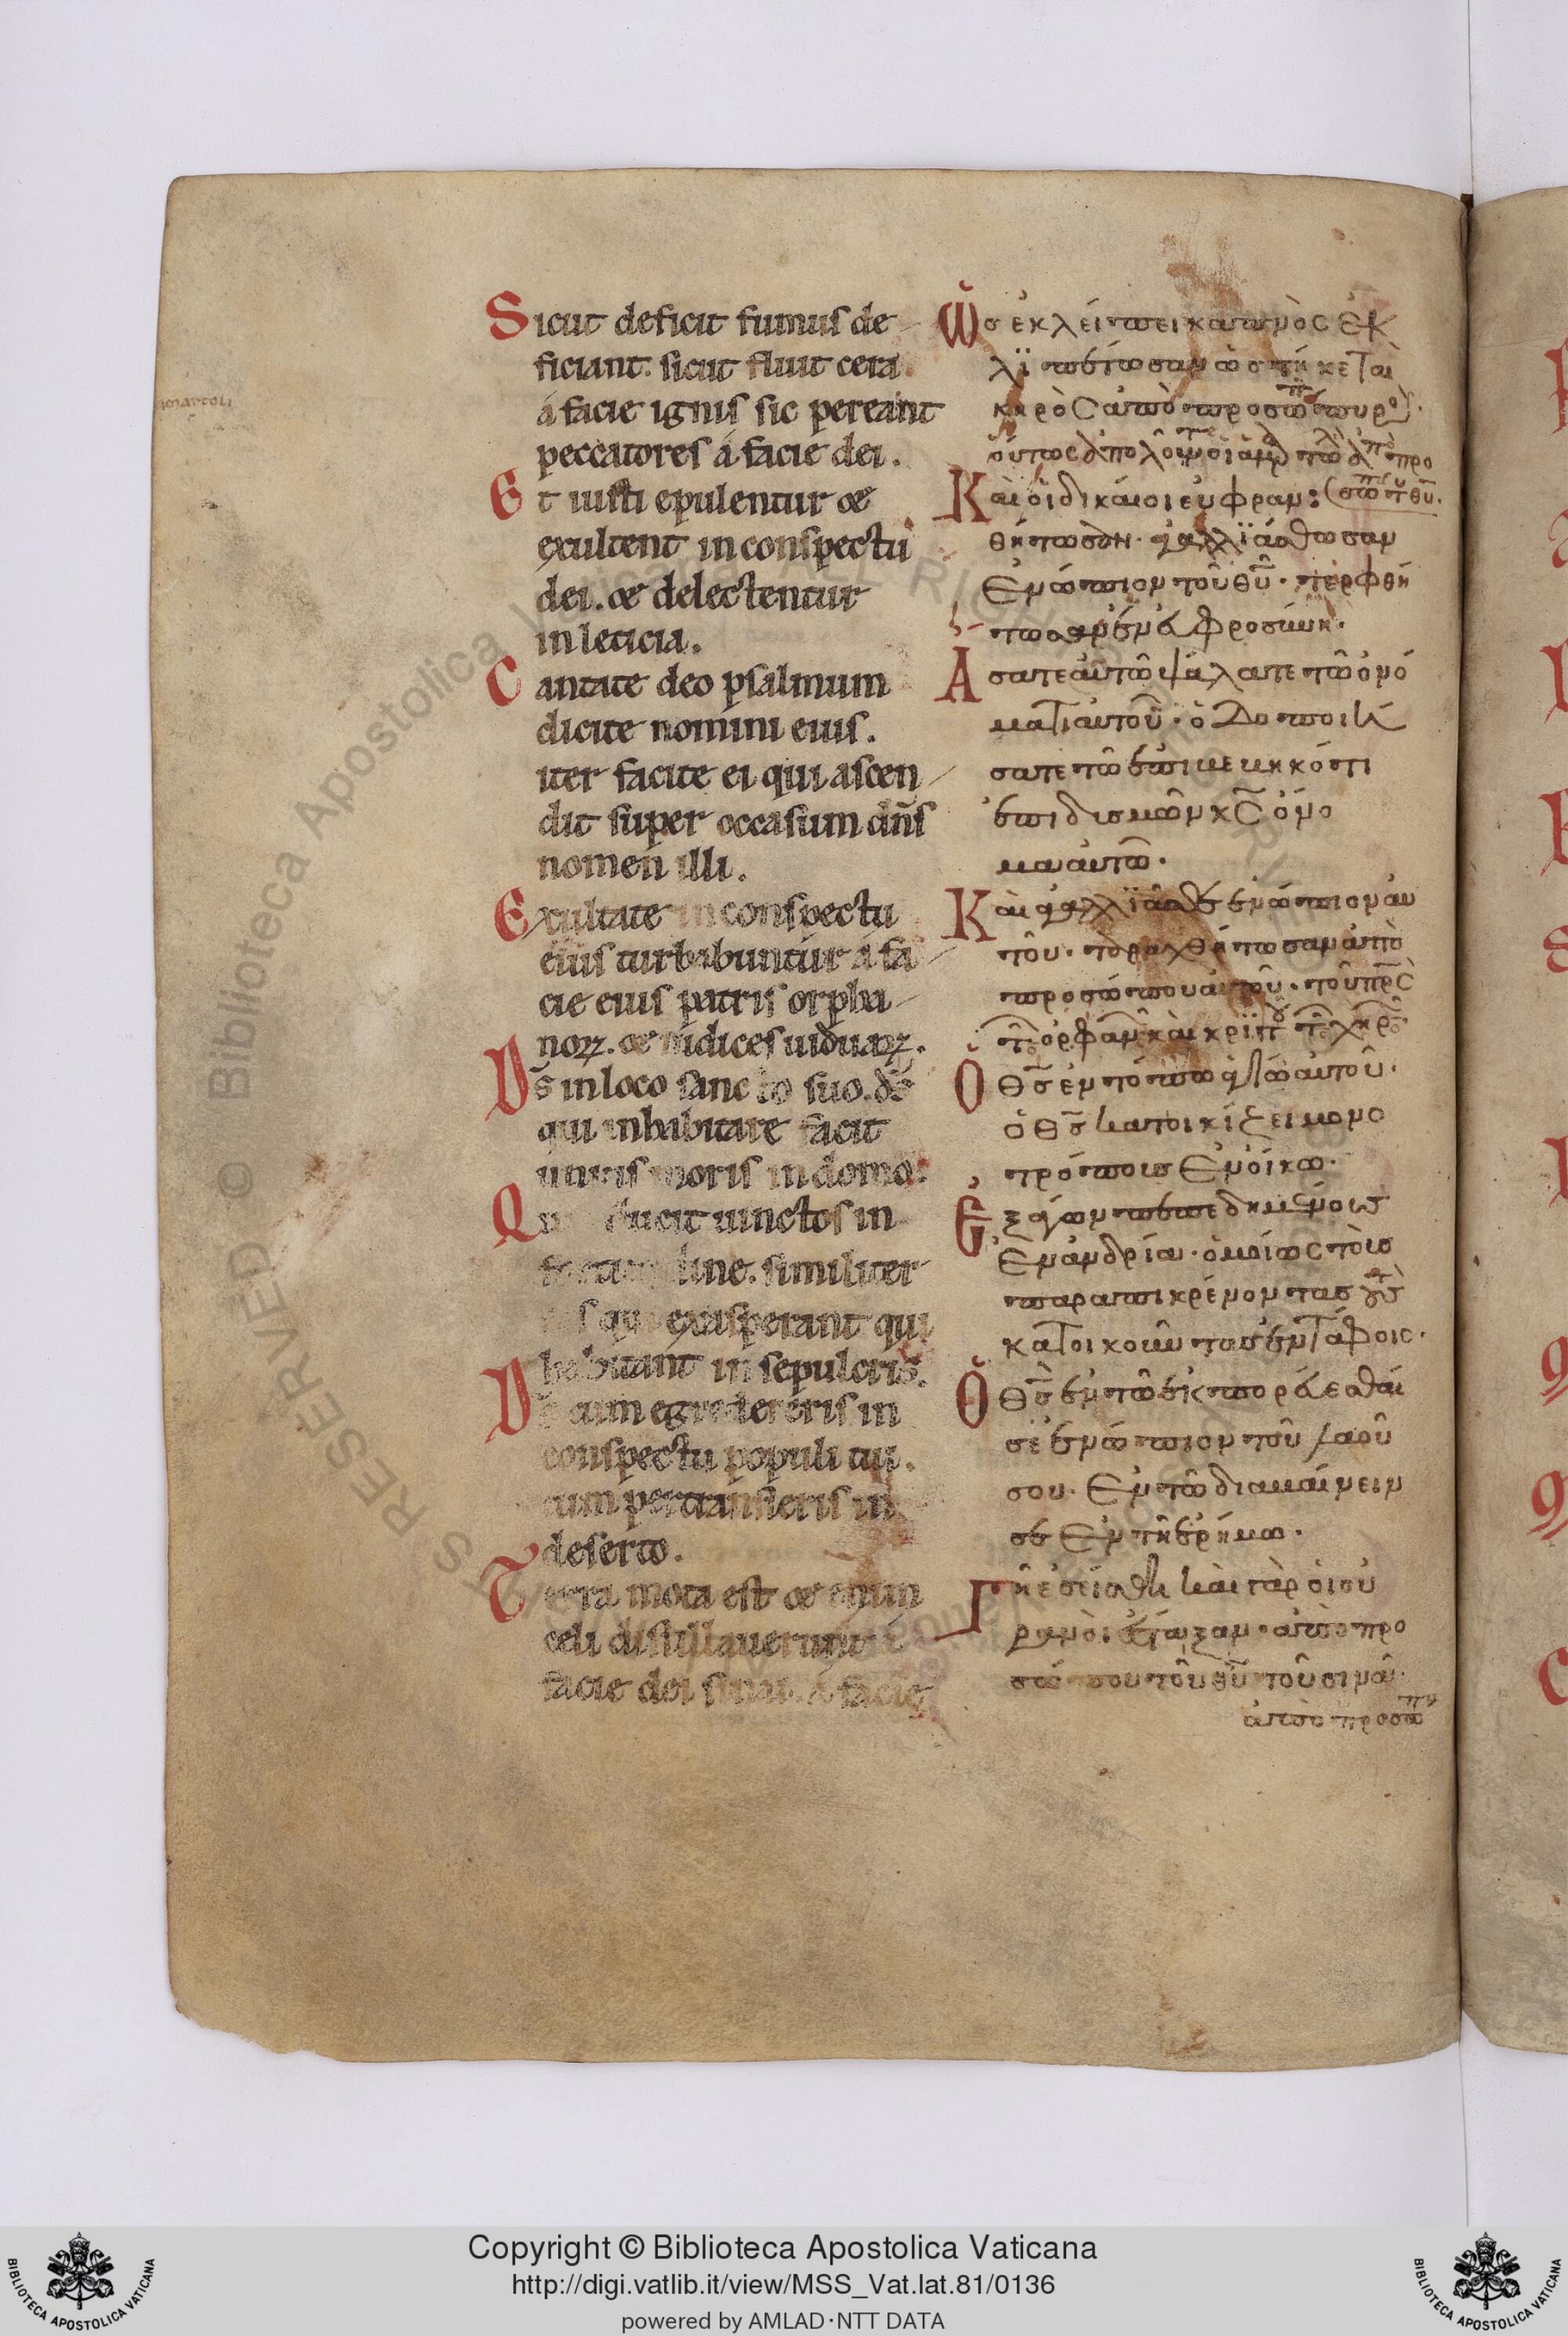 Sicut deficit fumus de
ficiant. sicut fluit cera
á facie ignis sic pereant
peccatores á facie dei.
Et iusti epulentur &
exultent in conspectu
dei. & delectentur
in leticia.
Cantate deo psalmum
dicite nomini eius.
iter facite ei qui ascen
dit super occasum dñs
nomen illi.
Exultate in conspectu
eius turbabuntur á fa
cie eius patris orpha
noꝝ. & iudices uiduaꝝ.
Ds̄ in loco sancto suo. ds̄
qui inhabitare facit
unius moris in domo.
Qui educit uinctos in
similiter
exasperant qui
habitant in sepulcris.
Ds̄ cum egredereris in
conspectu populi tui.
cum pertransieris in
deserto.
Terra mota est & enim
celi distillauerunt á
facie dei sinai. á facie
Ὡσ ἐκλείπει καπνὸς ἐκ
λϊπέτωσαν ὡσ τήκεται
κηρὸς ἀπὸ προσώπου πυρὸς.
Καὶ οἱ δικαιοι ευφραν
θήτωσαν. ἀγαλλϊάσθωσαν
Ενώπιον τοῦ θῦ. τερφθή
τωσαν ἐν ἐυφροσύνη.
Ἄσατε αὐτῶ ψάλατε τῶ ὀνό
ματι αυτοῦ. ὁδοποιή
σατε τῶ ἐπιβεβηκότι
ἐπι δισμῶν κς̄ ὄνο
μα αυτῶ.
Καὶ ἀγαλλϊᾶσθε ἐνώπιον αυ
τοῦ. ταραχθήτωσαν ἀπὸ
προσώπου αυτοῦ. τοῦ πρ̄ς
Ὁ θς̄ ἐν τόπω ἁγίω αυτοῦ.
ὁ θς̄ κατοικίζει μονο
τρόπους Εν οἴκω.
Ἐξάγων πεπεδημένους
Ἐν ἀνδρία. ὁμοίως τοὺς
παραπικρένοντας
κατοικοῦντας ἐν τάφοις.
Ὁ θς̄ ἐν τῶ ἐκπορέυεσθαι
σὲ ἐνώπιον τοῦ λαοῦ
σου. Ἐν τῶ διαβαίνειν
σε Ἐν τῆ ἐρήμω.
Γῆ ἐσείσθη καὶ γὰρ οἱ οὐ
ρανὸι ἔσταξαν. ἀπὸ προ
σώπου τοῦ θῦ τοῦ σινᾶ.
ἀπὸ προσώπου
Copyright © Biblioteca Apostolica Vaticana
http://digi.vatlib.it/view/MSS_Vat.lat.81/0136
powered by AMLAD·NTT DATA
BIBLIOTECA APOSTOLICA VATICANA
BIBLIOTECA APOSTOLICA VATICANA